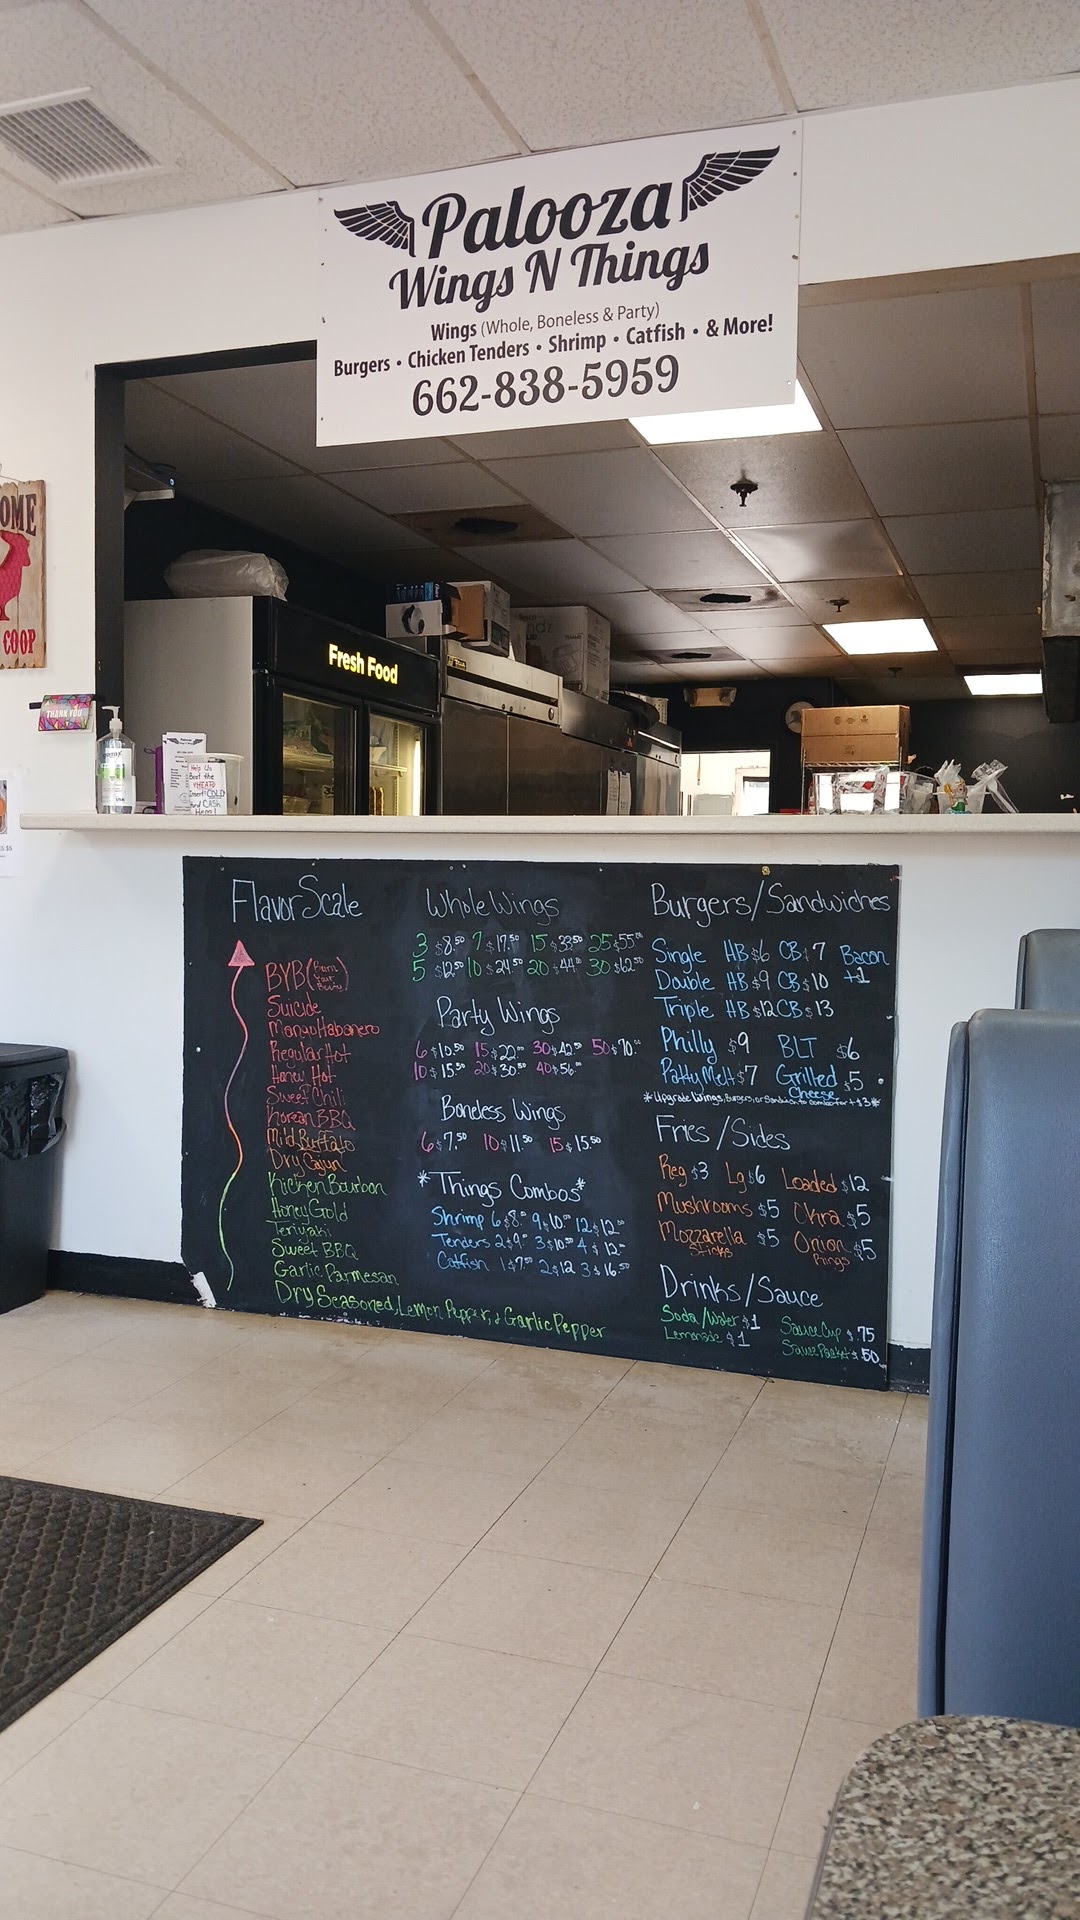 Palooza
Wings N Things
Wings (Whole, Boneless & Party)
Burgers • Chicken Tenders • Shrimp • Catfish • & More!
662-838-5959
OME
COOP
Fresh Food
THANK YOU
Help Us
Beat the
Insert COLD
Hard CASH
Here!
Flavor Scale
BYB (Burn Your
Suicide
Mango Habanero
Regular Hot
Honey Hot
Sweet Chili
Korean BBQ
Mild Buffalo
Dry Cajun
Kicken Bourbon
Honey Gold
Teriyaki
Sweet BBQ
Garlic Parmesan
Dry Seasoned, Lemon Pepper, & Garlic Pepper
Whole Wings
3 $8.50 7 $17.50 15 $33.50 25 $55.00
5 $12.50 10 $24.50 20 $44.00 30 $62.50
Party Wings
6 $10.50 15 $22.00 30 $42.50 50 $70.00
10 $15.50 20 $30.50 40 $56.00
Boneless Wings
6 $7.50 10 $11.50 15 $15.50
*Things Combos*
Shrimp 6 $8.00 9 $10.00 12 $12.00
Tenders 2 $9.00 3 $10.50 4 $12.00
Catfish 1 $7.50 2 $12 3 $16.50
Burgers/Sandwiches
Single HB $6 CB $7 Bacon
Double HB $9 CB $10 +1
Triple HB $12 CB $13
Philly $9 BLT $6
Patty Melt $7 Grilled Cheese $5
*Upgrade Wings, Burgers, or Sandwich to combo for +$3*
Fries/Sides
Reg $3 Lg $6 Loaded $12
Mushrooms $5 Okra $5
Mozzarella Sticks $5 Onion Rings $5
Drinks/Sauce
Soda/Water $1 Sauce Cup $.75
Lemonade $1 Sauce Packet $.50